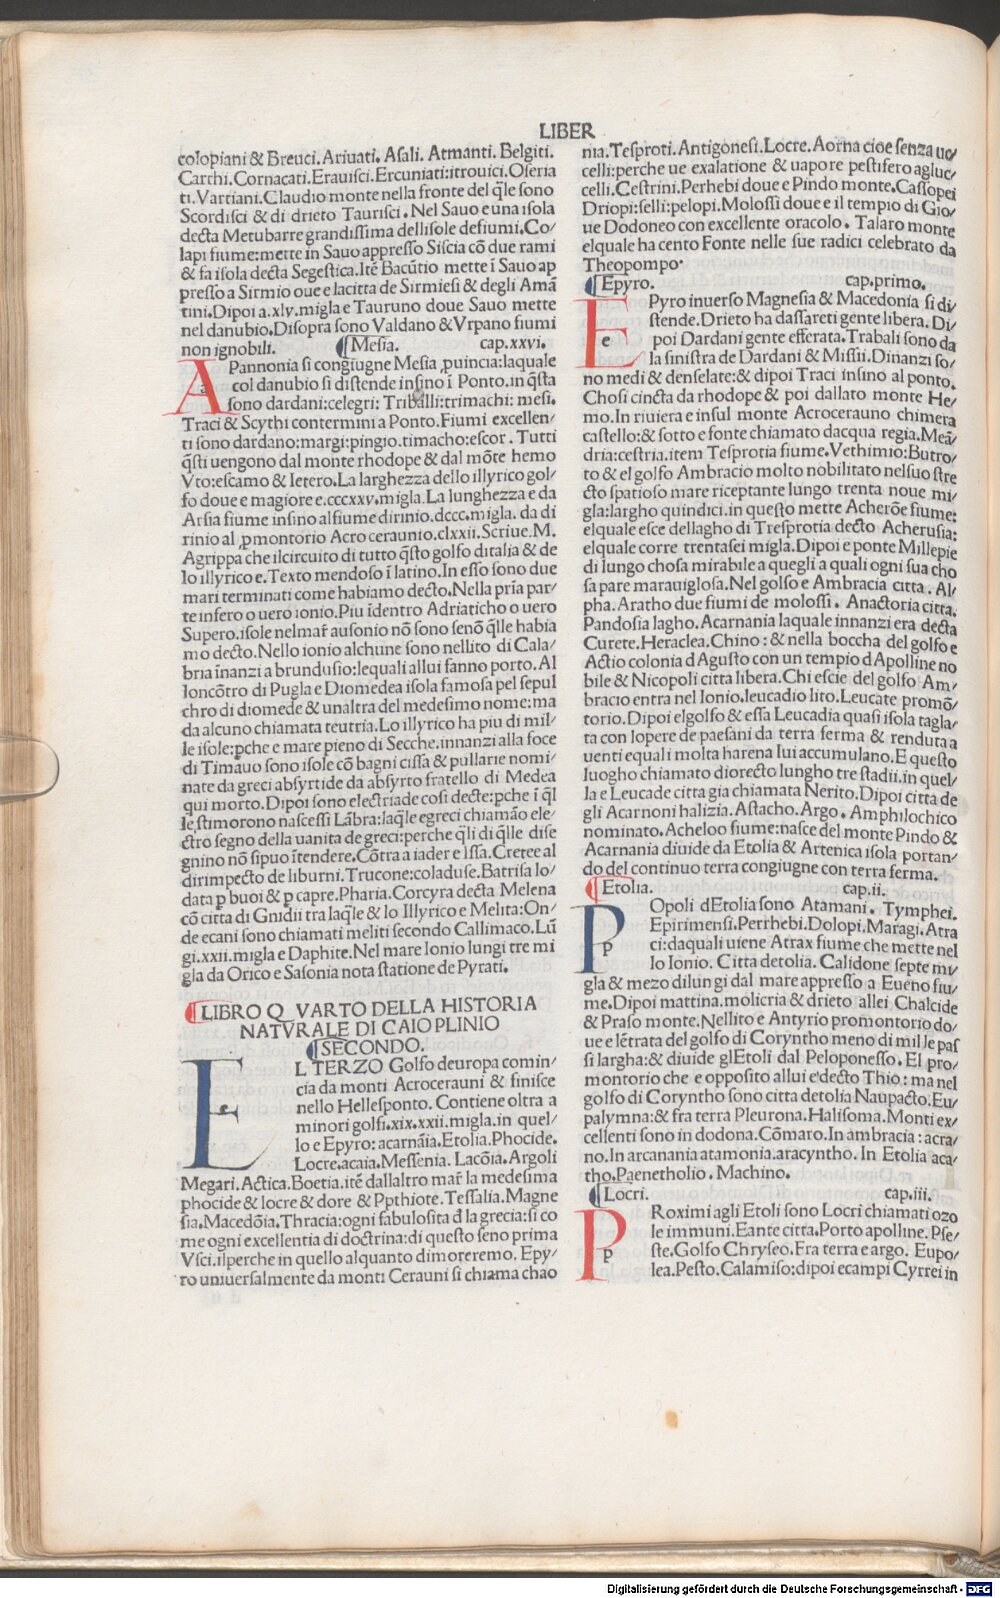 LIBER
colopiani & Breuci. Ariuati. Asali. Atmanti. Belgiti.
Carchi. Cornacati. Erauisci. Ercuniati: itrouici. Oseria
ti. Vartiani. Claudio monte nella fronte del q̃le sono
Scordisci & di drieto Taurisci. Nel Sauo e una isola
decta Metubarre grandissima dellisole defiumi. Co/
lapi fiume: mette in Sauo appresso Siscia cõ due rami
& fa isola decta Segestica. Itẽ Bacũtio mette ĩ Sauo ap
presso a Sirmio oue e lacitta de Sirmiesi & degli Amã
tini. Dipoi a .xlv. migla e Tauruno doue Sauo mette
nel danubio. Disopra sono Valdano & Vrpano fiumi
non ignobili. ¶Mesia. cap.xxvi.
A Pannonia si congiugne Mesia ꝓuincia: laquale
col danubio si distende insino ĩ Ponto. in q̃sta
sono dardani: celegri: Triballi: trimachi: mesi.
Traci & Scythi contermini a Ponto. Fiumi excellen/
ti sono dardano: margi: pingio. timacho: escor. Tutti
q̃sti uengono dal monte rhodope & dal mõte hemo
Vto: escamo & Ietero. La larghezza dello illyrico gol/
fo doue e magiore e .cccxxv. migla. La lunghezza e da
Arsia fiume insino alfiume dirinio. dccc. migla. da di
rinio al ꝓmontorio Acro ceraunio. clxxii. Scriue. M.
Agrippa che ilcircuito di tutto q̃sto golfo ditalia & de
lo illyrico e. Texto mendoso ĩ latino. In esso sono due
mari terminati come habiamo decto. Nella pria par/
te infero o uero ionio. Piu ĩdentro Adriaticho o uero
Supero. isole nelmar̃ ausonio nõ sono senõ q̃lle habia
mo decto. Nello ionio alchune sono nellito di Cala/
bria ĩnanzi a brundusio: lequali allui fanno porto. Al
loncõtro di Pugla e Diomedea isola famosa pel sepul
chro di diomede & unaltra del medesimo nome: ma
da alcuno chiamata teutria. Lo illyrico ha piu di mil/
le isole: pche e mare pieno di Secche. innanzi alla foce
di Timauo sono isole cõ bagni cissa & pullarie nomi/
nate da greci absyrtide da absyrto fratello di Medea
qui morto. Dipoi sono electriade cosi decte: pche ĩ q̃l
le stimorono nascessi Lãbra: laq̃le egreci chiamão ele/
ctro segno della uanita de greci: perche q̃li di q̃lle dise
gnino nõ sipuo ĩtendere. Cõtra a iader e Issa. Cretee al
dirimpecto de liburni. Trucone: coladuse. Batrisa lo/
data p buoi & p capre. Pharia. Corcyra decta Melena
cõ citta di Gnidii tra laq̃le & lo Illyrico e Melita: On/
de ecani sono chiamati meliti secondo Callimaco. Lũ
gi .xxii. migla e Daphite. Nel mare Ionio lungi tre mi
gla da Orico e Sasonia nota statione de Pyrati.
¶LIBRO QVARTO DELLA HISTORIA
NATVRALE DI CAIO PLINIO
¶SECONDO.
L TERZO Golfo deuropa comin/
cia da monti Acrocerauni & finisce
nello Hellesponto. Contiene oltra a
minori golfi .xix.xxii. migla. in quel/
lo e Epyro: acarnãia. Etolia. Phocide.
Locre. acaia. Messenia. Lacõia. Argoli
Megari. Actica. Boetia. itẽ dallaltro mar̃ la medesima
phocide & locre & dore & Ppthiote. Tessalia. Magne
sia. Macedõia. Thracia: ogni fabulosita ḋ la grecia: si co
me ogni excellentia di doctrina: di questo seno prima
Vsci. ilperche in quello alquanto dimoreremo. Epy/
ro uniuersalmente da monti Cerauni si chiama chao
nia. Tesproti. Antigonesi. Locre. Aorna cioe senza uc/
celli: perche ue exalatione & uapore pestifero agluc/
celli. Cestrini. Perhebi doue e Pindo monte. Cassopei
Driopi: selli: pelopi. Molossi doue e il tempio di Gio/
ue Dodoneo con excellente oracolo. Talaro monte
elquale ha cento Fonte nelle sue radici celebrato da
Theopompo.
¶Epyro. cap.primo.
E Pyro inuerso Magnesia & Macedonia si di/
stende. Drieto ha dassareti gente libera. Di/
poi Dardani gente efferata. Trabali sono da
la sinistra de Dardani & Missii. Dinanzi so/
no medi & denselate: & dipoi Traci insino al ponto.
Chosi cincta da rhodope & poi dallato monte He/
mo. In riuiera e insul monte Acrocerauno chimera
castello: & sotto e fonte chiamato dacqua regia. Meã/
dria: cestria. item Tesprotia fiume. Vethimio: Butro/
to & el golfo Ambracio molto nobilitato nelsuo stre
cto spatioso mare riceptante lungo trenta noue mi/
gla: largho quindici. in questo mette Acherõe fiume:
elquale esce dellagho di Tresprotia decto Acherusia:
elquale corre trentasei migla. Dipoi e ponte Millepie
di lungo chosa mirabile a quegli a quali ogni sua cho
sa pare marauiglosa. Nel golfo e Ambracia citta. Al/
pha. Aratho due fiumi de molossi. Anactoria citta.
Pandosia lagho. Acarnania laquale innanzi era decta
Curete. Heraclea. Chino: & nella boccha del golfo e
Actio colonia dAgusto con un tempio dApolline no
bile & Nicopoli citta libera. Chi escie del golfo Am/
bracio entra nel Ionio. leucadio lito. Leucate promõ/
torio. Dipoi elgolfo & essa Leucadia quasi isola tagla/
ta con lopere de paesani da terra ferma & renduta a
uenti equali molta harena Iui accumulano. E questo
luogho chiamato diorecto lungho tre stadii. in quel/
la e Leucade citta gia chiamata Nerito. Dipoi citta de
gli Acarnoni halizia. Astacho. Argo. Amphilochico
nominato. Acheloo fiume: nasce del monte Pindo &
Acarnania diuide da Etolia & Artenica isola portan/
do del continuo terra congiugne con terra ferma.
¶Etolia. cap.ii.
P Opoli dEtolia sono Atamani. Tymphei.
Epirimensi. Perrhebi. Dolopi. Maragi. Atra
ci: daquali uiene Atrax fiume che mette nel
lo Ionio. Citta detolia. Calidone septe mi/
gla & mezo dilungi dal mare appresso a Eueno fiu/
me. Dipoi mattina. molicria & drieto allei Chalcide
& Praso monte. Nellito e Antyrio promontorio do/
ue e lẽtrata del golfo di Coryntho meno di mille pas
si largha: & diuide glEtoli dal Peloponesso. El pro/
montorio che e opposito allui e decto Thio: ma nel
golfo di Coryntho sono citta detolia Naupacto. Eu/
palymna: & fra terra Pleurona. Halisoma. Monti ex/
cellenti sono in dodona. Cõmaro. In ambracia: acra/
no. In arcanania atamonia. aracyntho. In Etolia aca/
tho. Paenetholio. Machino.
¶Locri. cap.iii.
P Roximi agli Etoli sono Locri chiamati ozo
le immuni. Eante citta. Porto apolline. Pse/
ste. Golfo Chryseo. Fra terra e argo. Eupo/
lea. Pesto. Calamiso: dipoi ecampi Cyrrei in
Digitalisierung gefördert durch die Deutsche Forschungsgemeinschaft - DFG